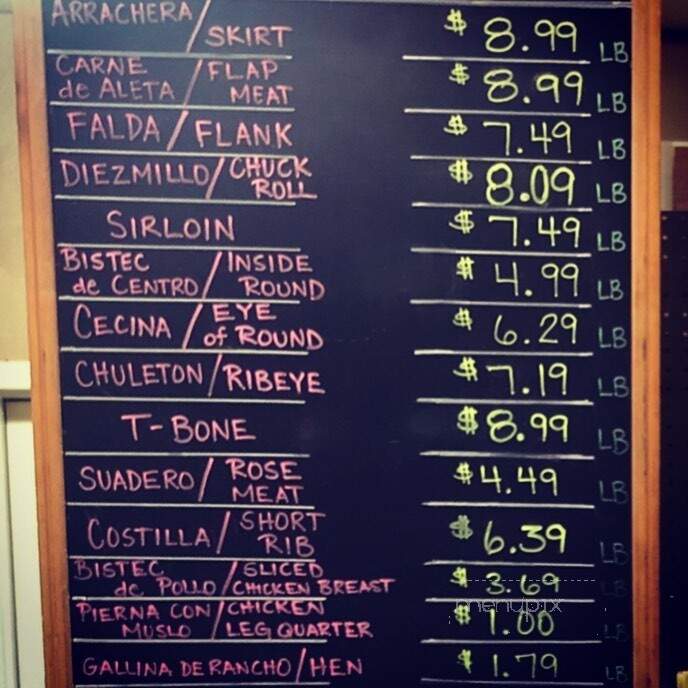 ARRACHERA/SKIRT $ 8.99 LB
CARNE de ALETA/FLAP MEAT $ 8.99 LB
FALDA/FLANK $ 7.49 LB
DIEZMILLO/CHUCK ROLL $ 8.09 LB
SIRLOIN $ 7.49 LB
BISTEC de CENTRO/INSIDE ROUND $ 4.99 LB
CECINA/EYE of ROUND $ 6.29 LB
CHULETON/RIBEYE $ 7.19 LB
T-BONE $ 8.99 LB
SUADERO/ROSE MEAT $ 4.49 LB
COSTILLA/SHORT RIB $ 6.39 LB
BISTEC de POLLO/SLICED CHICKEN BREAST $ 3.69 LB
menupix
PIERNA CON MUSLO/CHICKEN LEG QUARTER $ 1.00 LB
GALLINA DE RANCHO/HEN $ 1.79 LB